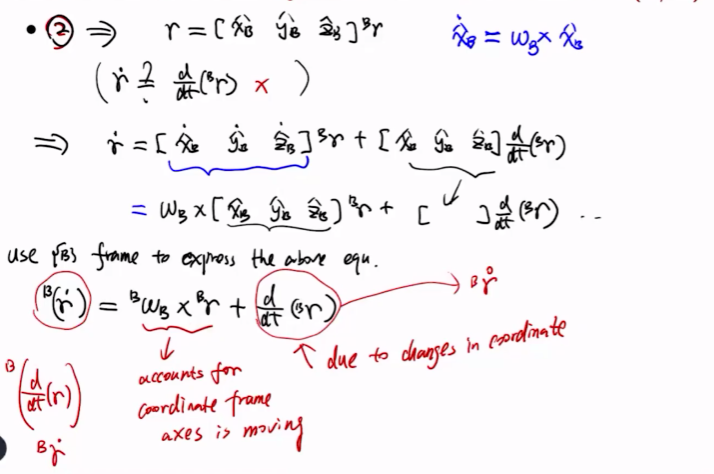 • ② ⇒ r = [x̂_B ŷ_B ẑ_B] ᴮr   x̂̇_B = ω_B × x̂_B
( ṙ ≟ d/dt(ᴮr) × )
⇒ ṙ = [x̂̇_B ŷ̇_B ẑ̇_B] ᴮr + [x̂_B ŷ_B ẑ_B] d/dt(ᴮr)
= ω_B × [x̂_B ŷ_B ẑ_B] ᴮr + [ ] d/dt(ᴮr) ...
use {B} frame to express the above equ.
ᴮ(ṙ) = ᴮω_B × ᴮr + d/dt(ᴮr) → ᴮr̊
ᴮ(d/dt(r))
ᴮṙ
accounts for
coordinate frame
axes is moving
due to changes in coordinate